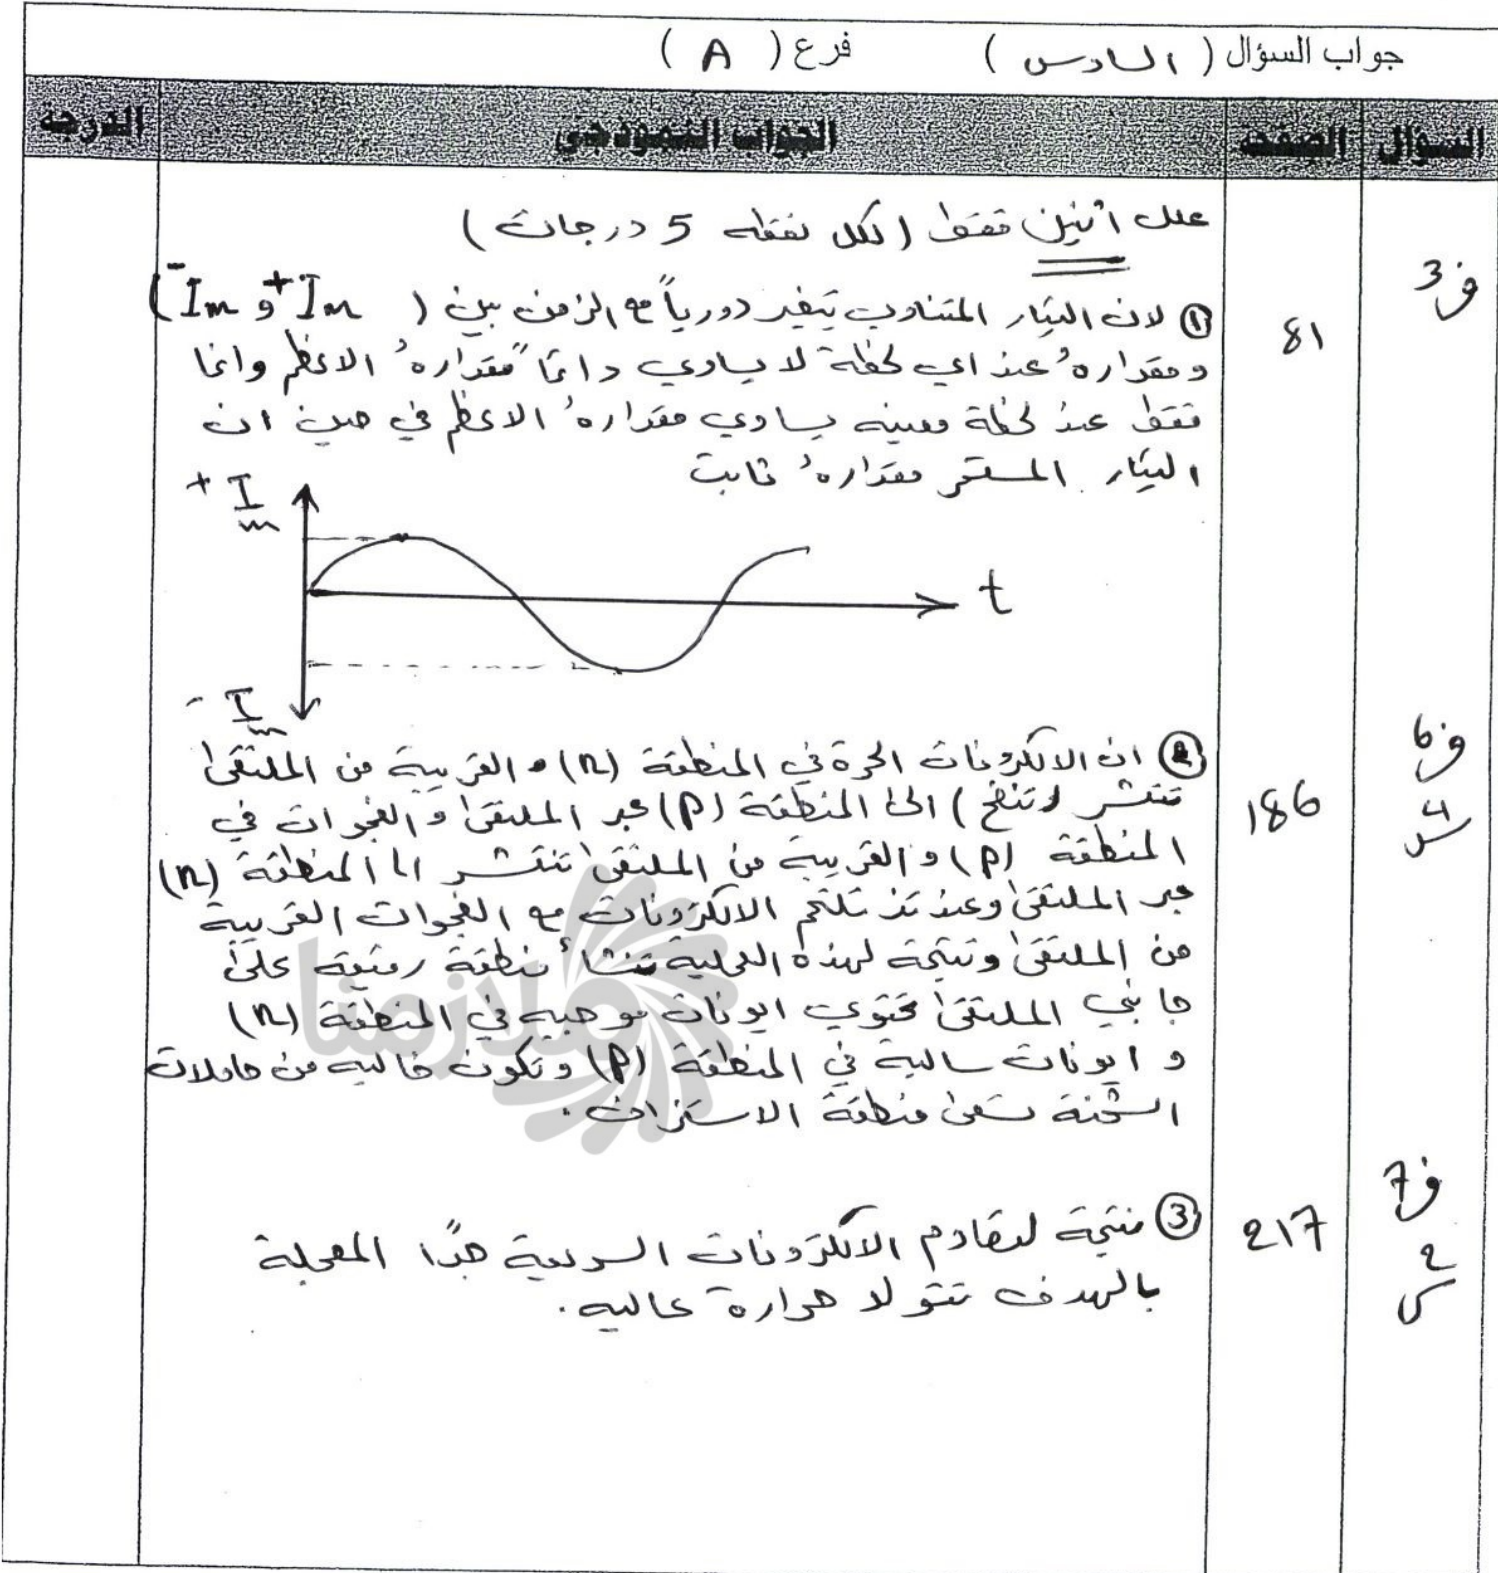 جواب السؤال ( السادس ) فرع ( A )
السؤال الصفحة الجواب النموذجي الدرجة
علل اثنين فقط (لكل نقطه 5 درجات)
ف3 81
① لان التيار المتناوب يتغير دورياً مع الزمن بين ( Im+ و Im-)
ومقدارهُ عند اي لحظة لا يساوي دائماً مقدارهُ الاعظم وانما
فقط عند لحظة معينه يساوي مقدارهُ الاعظم في حين ان
التيار المستمر مقدارهُ ثابت
+ Im
t
- Im
ف6 س4 186
② ان الالكترونات الحرة في المنطقة (n) والقريبة من الملتقى
تنتشر (تنضح) الى المنطقة (p) عبر الملتقى والفجوات في
المنطقة (p) والقريبة من الملتقى تنتشر الى المنطقة (n)
عبر الملتقى وعندئذ تلتحم الالكترونات مع الفجوات القريبة
من الملتقى ونتيجة لهذه العملية تنشأ منطقة رقيقة على
جانبي الملتقى تحتوي ايونات موجبه في المنطقة (n)
و ايونات سالبة في المنطقة (p) وتكون خالية من حاملات
الشحنة تسمى منطقة الاستنزاف .
ف7 س2 217
③ نتيجة لتصادم الالكترونات السريعة جدًا المعجلة
بالهدف تتولد حرارة عاليه .
ملازمنا